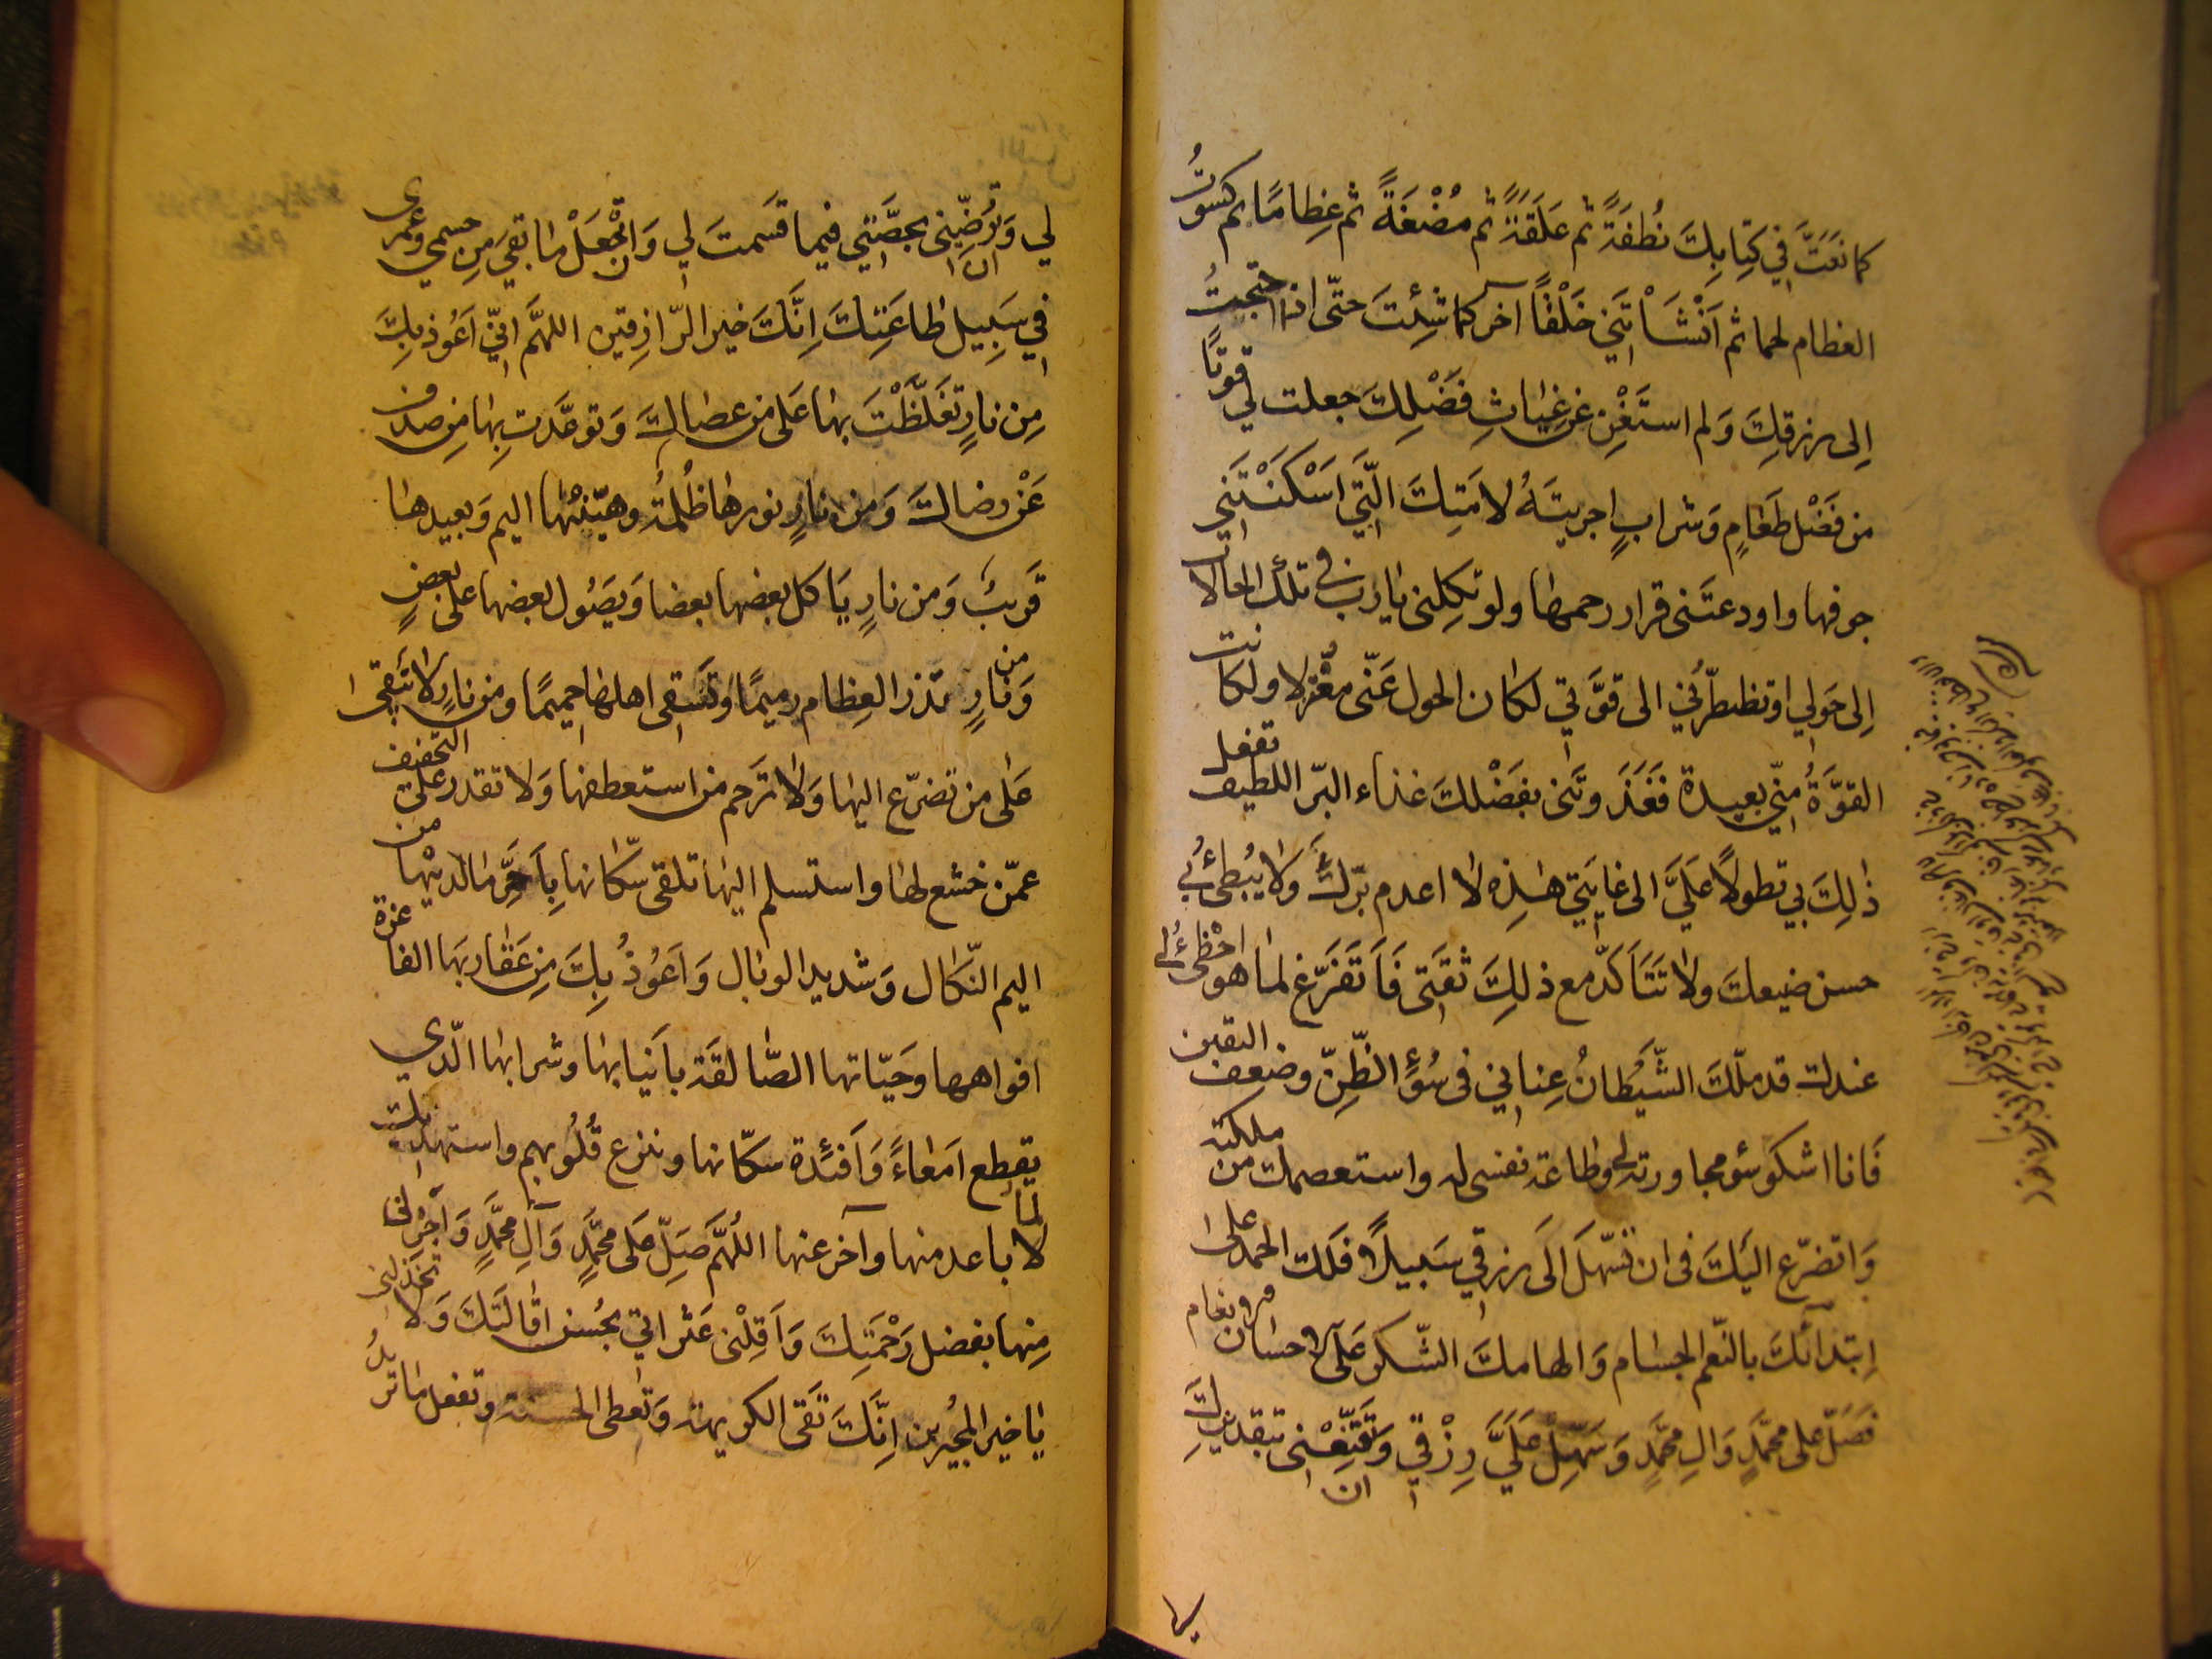 كما نَعَتَّ فِي كِتابِكَ نُطفَةً ثم عَلَقَةً ثم مُضْغَةً ثم عِظامًا ثم كسَوْتَ
العظام لحما ثم اَنْشَاْتَني خَلْقًا آخر كما شِئتَ حتّى اذا احتجتُ
اِلى رزقِكَ وَلم استَغْنِ عَن غِياثِ فَضْلِكَ جعلت لي قوتًا
من فَضْل طَعَامٍ وَشرابٍ اجريتَهُ لامَتِكَ الّتي اَسْكَنْتَني
جوفها واودعتَنى قرار رحمها ولو تكِلنى يا رب في تلك الحالات
اِلى حَولي او تضطرّني الى قوّتي لكان الحول عَنّى مُعْتزلا ولكانت
القوّةُ مِنّي بعيدة فغَذَوتَنى بفَضْلكَ غذاء البرّ اللطيف تفعل
ذٰلِكَ بي تطولاً عَلَيَّ الى غايَتي هٰذِه لا اعدم بِرّكَ وَلا يُبْطئُ بي
حسن ضيعك ولا تَتَاَكّد مع ذلِكَ ثقَتى فَاَتَفَرّغ لما هو احْظىٰ لي
عندك قد ملّك الشّيْطانُ عِناني فى سُوْءِ الظّنّ وضعف اليقين
فَانا اشكو سؤ مجاورته لي وطاعة نفسى له واستعصمك من ملكته
وَاتضرّع اليَكَ فى ان تسّهلَ الَى رزقي سَبيلاً فلَك الحمد على
اِبتدائكَ بالنّعم الجسام وَالهامكَ الشّكر عَلى الاحسان والانعام
فصَلّ على محمّدٍ وَالِ محمّدٍ وَسَهّلْ عَلَيَّ رِزْقي وَتقَنّعْنى بتقديرك
ان
لي وَتُرَضّيَنى بحصَّتي فيما قسَمتَ لي وَانْ تجْعَلَ ما بقيَ مِن جسمي وعمرى
ان
في سَبِيل طاعَتِكَ اِنَّكَ خير الرّازِقين اللهمَّ اِنّي اَعُوذ بِكَ
مِن نارٍ تَغَلّظْتَ بها عَلى من عصاكَ وَتوعّدت بِها من صدف
عَنْ رضاك وَمن نارٍ نورها ظُلمة وهيّنُها اليم وَبعيدها
قَريبٌ وَمن نارٍ يَاكل بعضها بعضا وَيَصُول بعضها على بعضٍ
وَمن نارٍ تذر العِظام رميمًا وَتسَقى اهلها حميمًا ومن نارٍ لا تُبقى
عَلى من تضرّع اليها وَلا تَرحم من استعطفها وَلا تقدر على التخفيف
عمّن خشع لها واستسلم اليها تلقى سكّانها بِاَحَرِّ ما لديْها من
اليم النّكال وَشديد الوبال وَاَعُوذُ بِكَ مِن عَقاربَها الفاغرة
افواهها وحَيّاتها الصّالقَة باَنيابها وشرابها الّذي
يقطع اَمعاءَ وَاَفئدة سكّانها وينزع قُلُوبهم واستهديك
لما باعد منها وآخر عنها اللهُمَّ صَلِّ عَلى محمَّدٍ وَآلِ محمَّدٍ وَاَجْرنى
مِنها بفضل رَحْمَتِكَ وَاَقِلْنى عَثراتي بحُسن اقالَتكَ وَلا تخذلنى
يا خير المُجيرين اِنّكَ تَقى الكريهة وَتعطى الحسنة وتفعل ما تريدُ